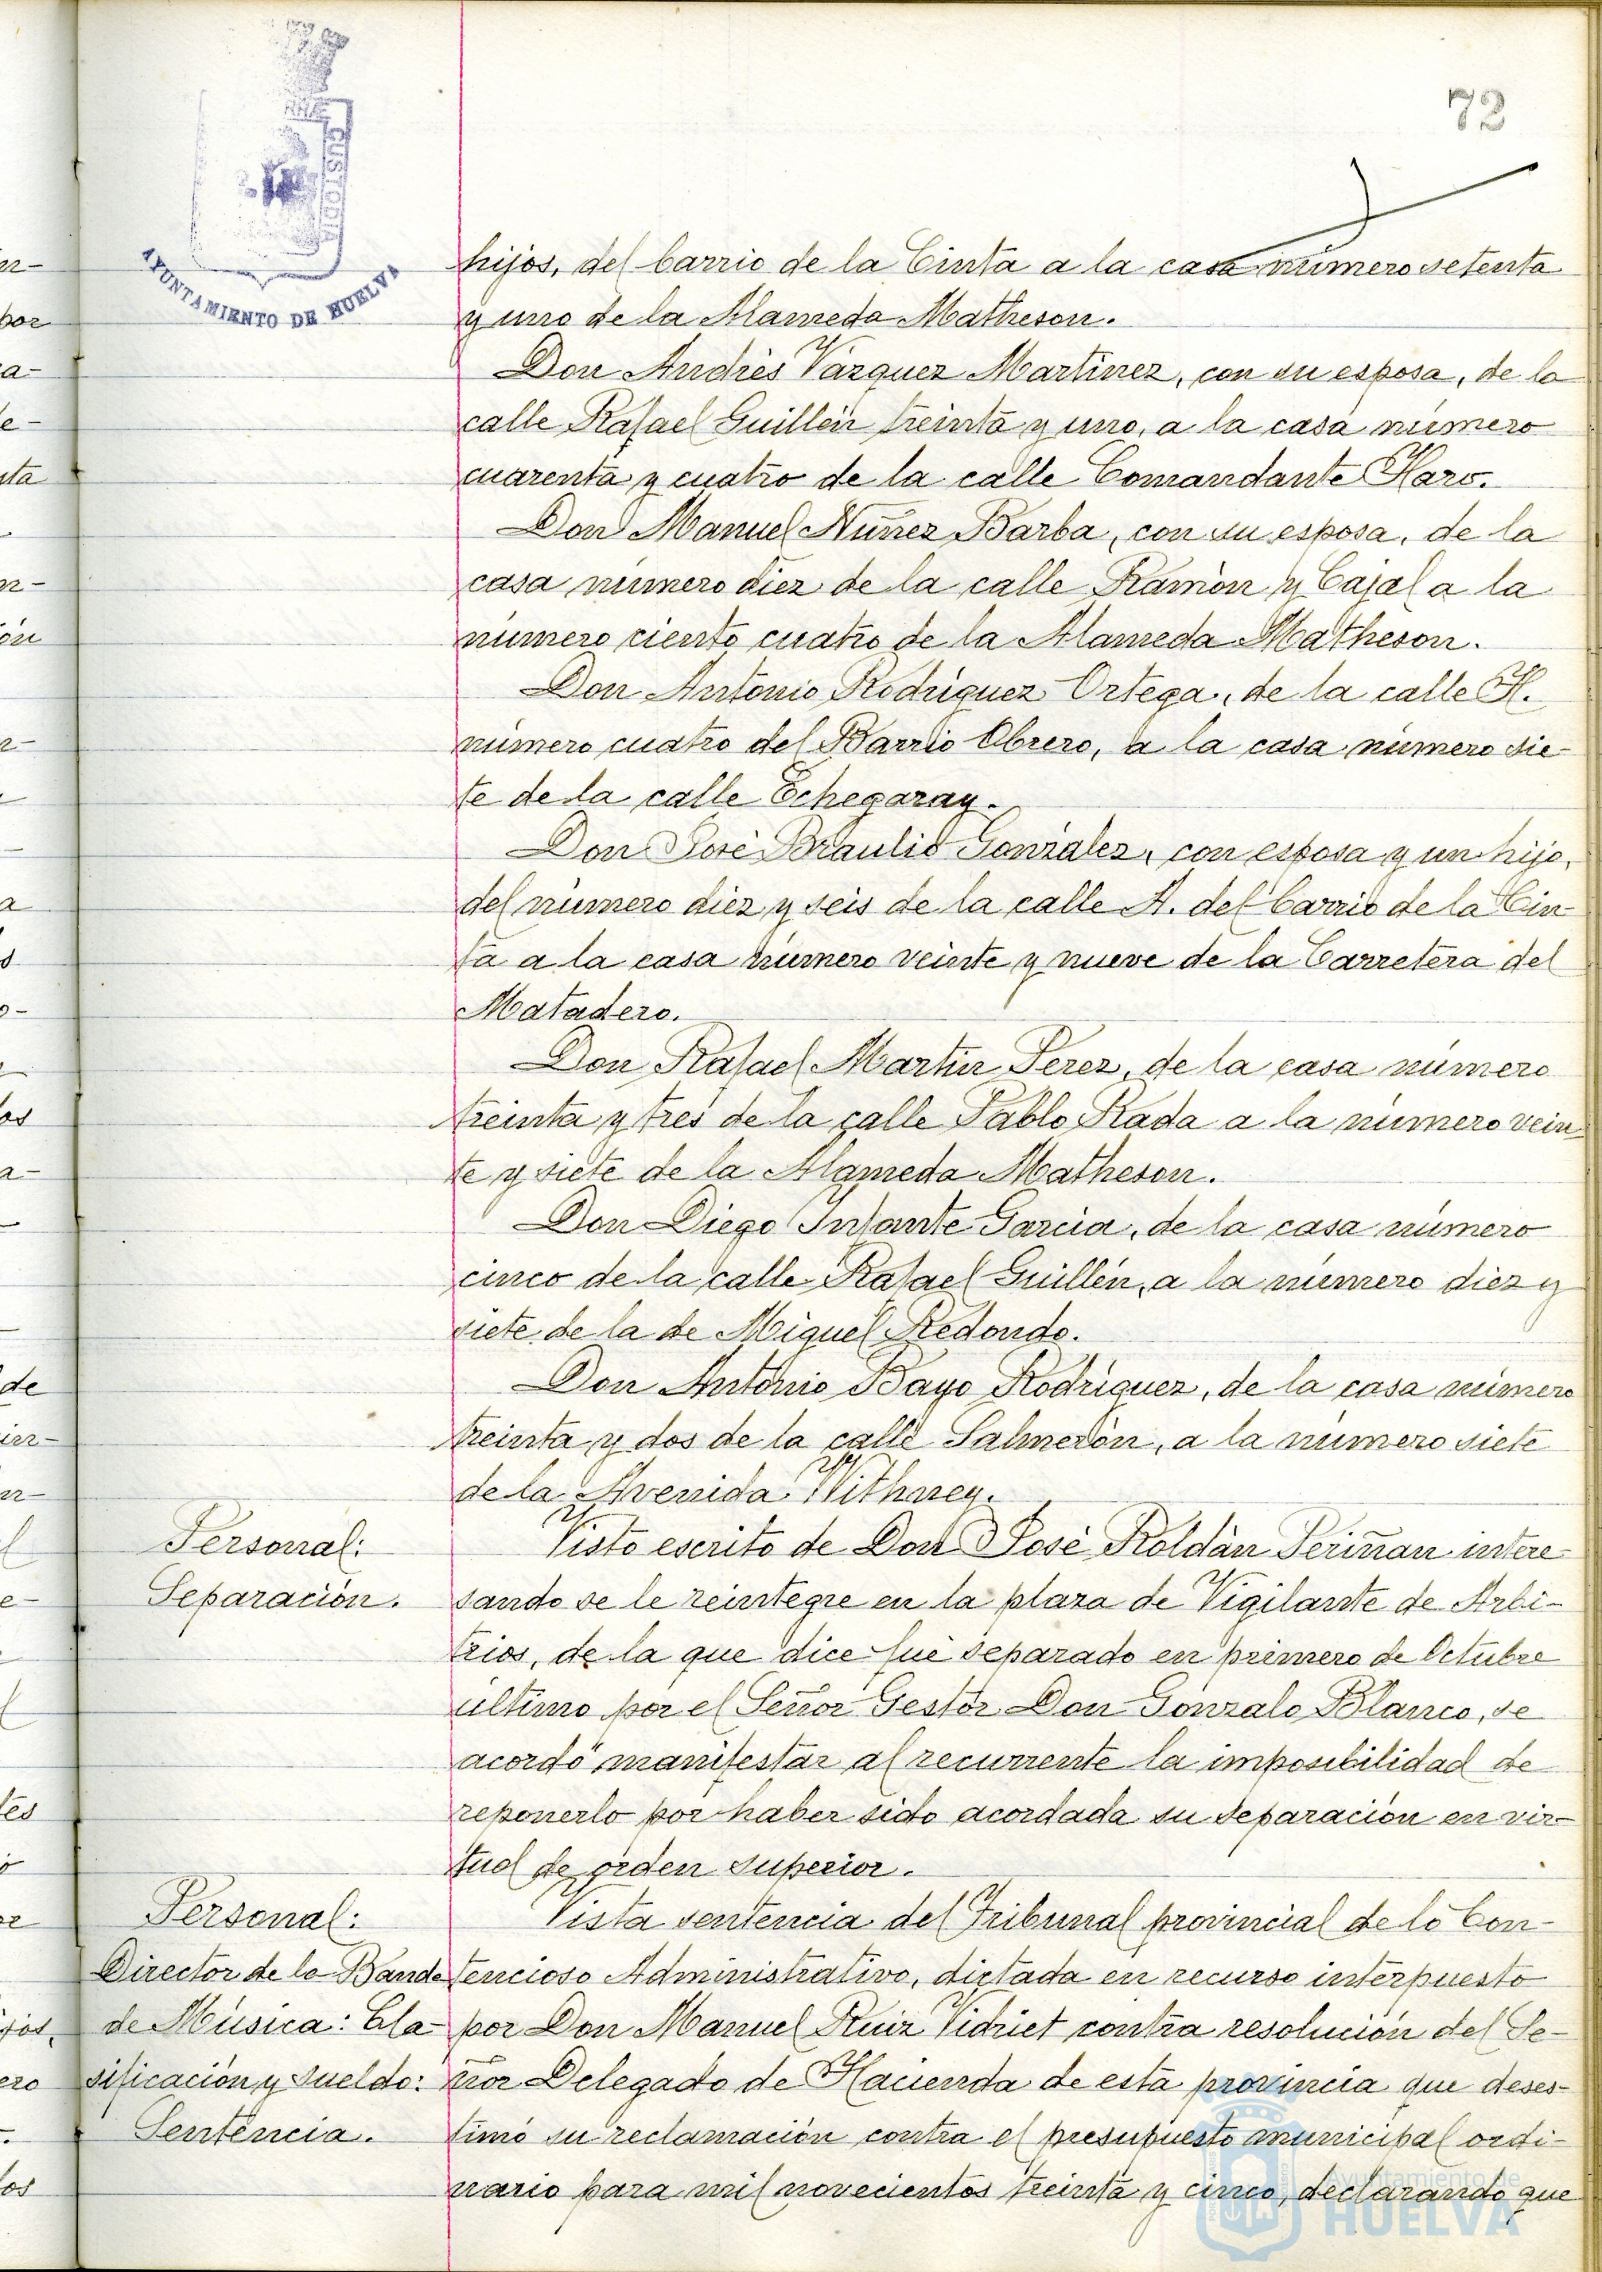 72
CUSTODIA
AYUNTAMIENTO DE HUELVA
hijos, del barrio de la Cinta a la casa número setenta
y uno de la Alameda Matheson.
Don Andrés Vázquez Martinez, con su esposa, de la
calle Rafael Guillén treinta y uno, a la casa número
cuarenta y cuatro de la calle Comandante Haro.
Don Manuel Nuñez Barba, con su esposa, de la
casa número diez de la calle Ramón y Cajal a la
número ciento cuatro de la Alameda Matheson.
Don Antonio Rodriguez Ortega, de la calle H.
número cuatro del Barrio Obrero, a la casa número sie-
te de la calle Echegaray.
Don José Braulio González, con esposa y un hijo,
del número diez y seis de la calle A. del barrio de la Cin-
ta a la casa número veinte y nueve de la Carretera del
Matadero.
Don Rafael Martin Perez, de la casa número
treinta y tres de la calle Pablo Rada a la número vein-
te y siete de la Alameda Matheson.
Don Diego Infante Garcia, de la casa número
cinco de la calle Rafael Guillén, a la número diez y
siete de la de Miguel Redondo.
Don Antonio Bayo Rodriguez, de la casa número
treinta y dos de la calle Salmerón, a la número siete
de la Avenida Withney.
Personal:
Separación.
Visto escrito de Don José Roldán Periñan intere-
sando se le reintegre en la plaza de Vigilante de Arbi-
trios, de la que dice fué separado en primero de Octubre
último por el Señor Gestor Don Gonzalo Blanco, se
acordó manifestar al recurrente la imposibilidad de
reponerlo por haber sido acordada su separación en vir-
tud de orden superior.
Personal:
Director de la Banda
de Música: Cla-
sificación y sueldo:
Sentencia.
Vista sentencia del Tribunal provincial de lo Con-
tencioso Administrativo, dictada en recurso interpuesto
por Don Manuel Ruiz Vidriet contra resolución del Se-
ñor Delegado de Hacienda de esta provincia que deses-
timó su reclamación contra el presupuesto municipal ordi-
nario para mil novecientos treinta y cinco, declarando que
Ayuntamiento de
HUELVA